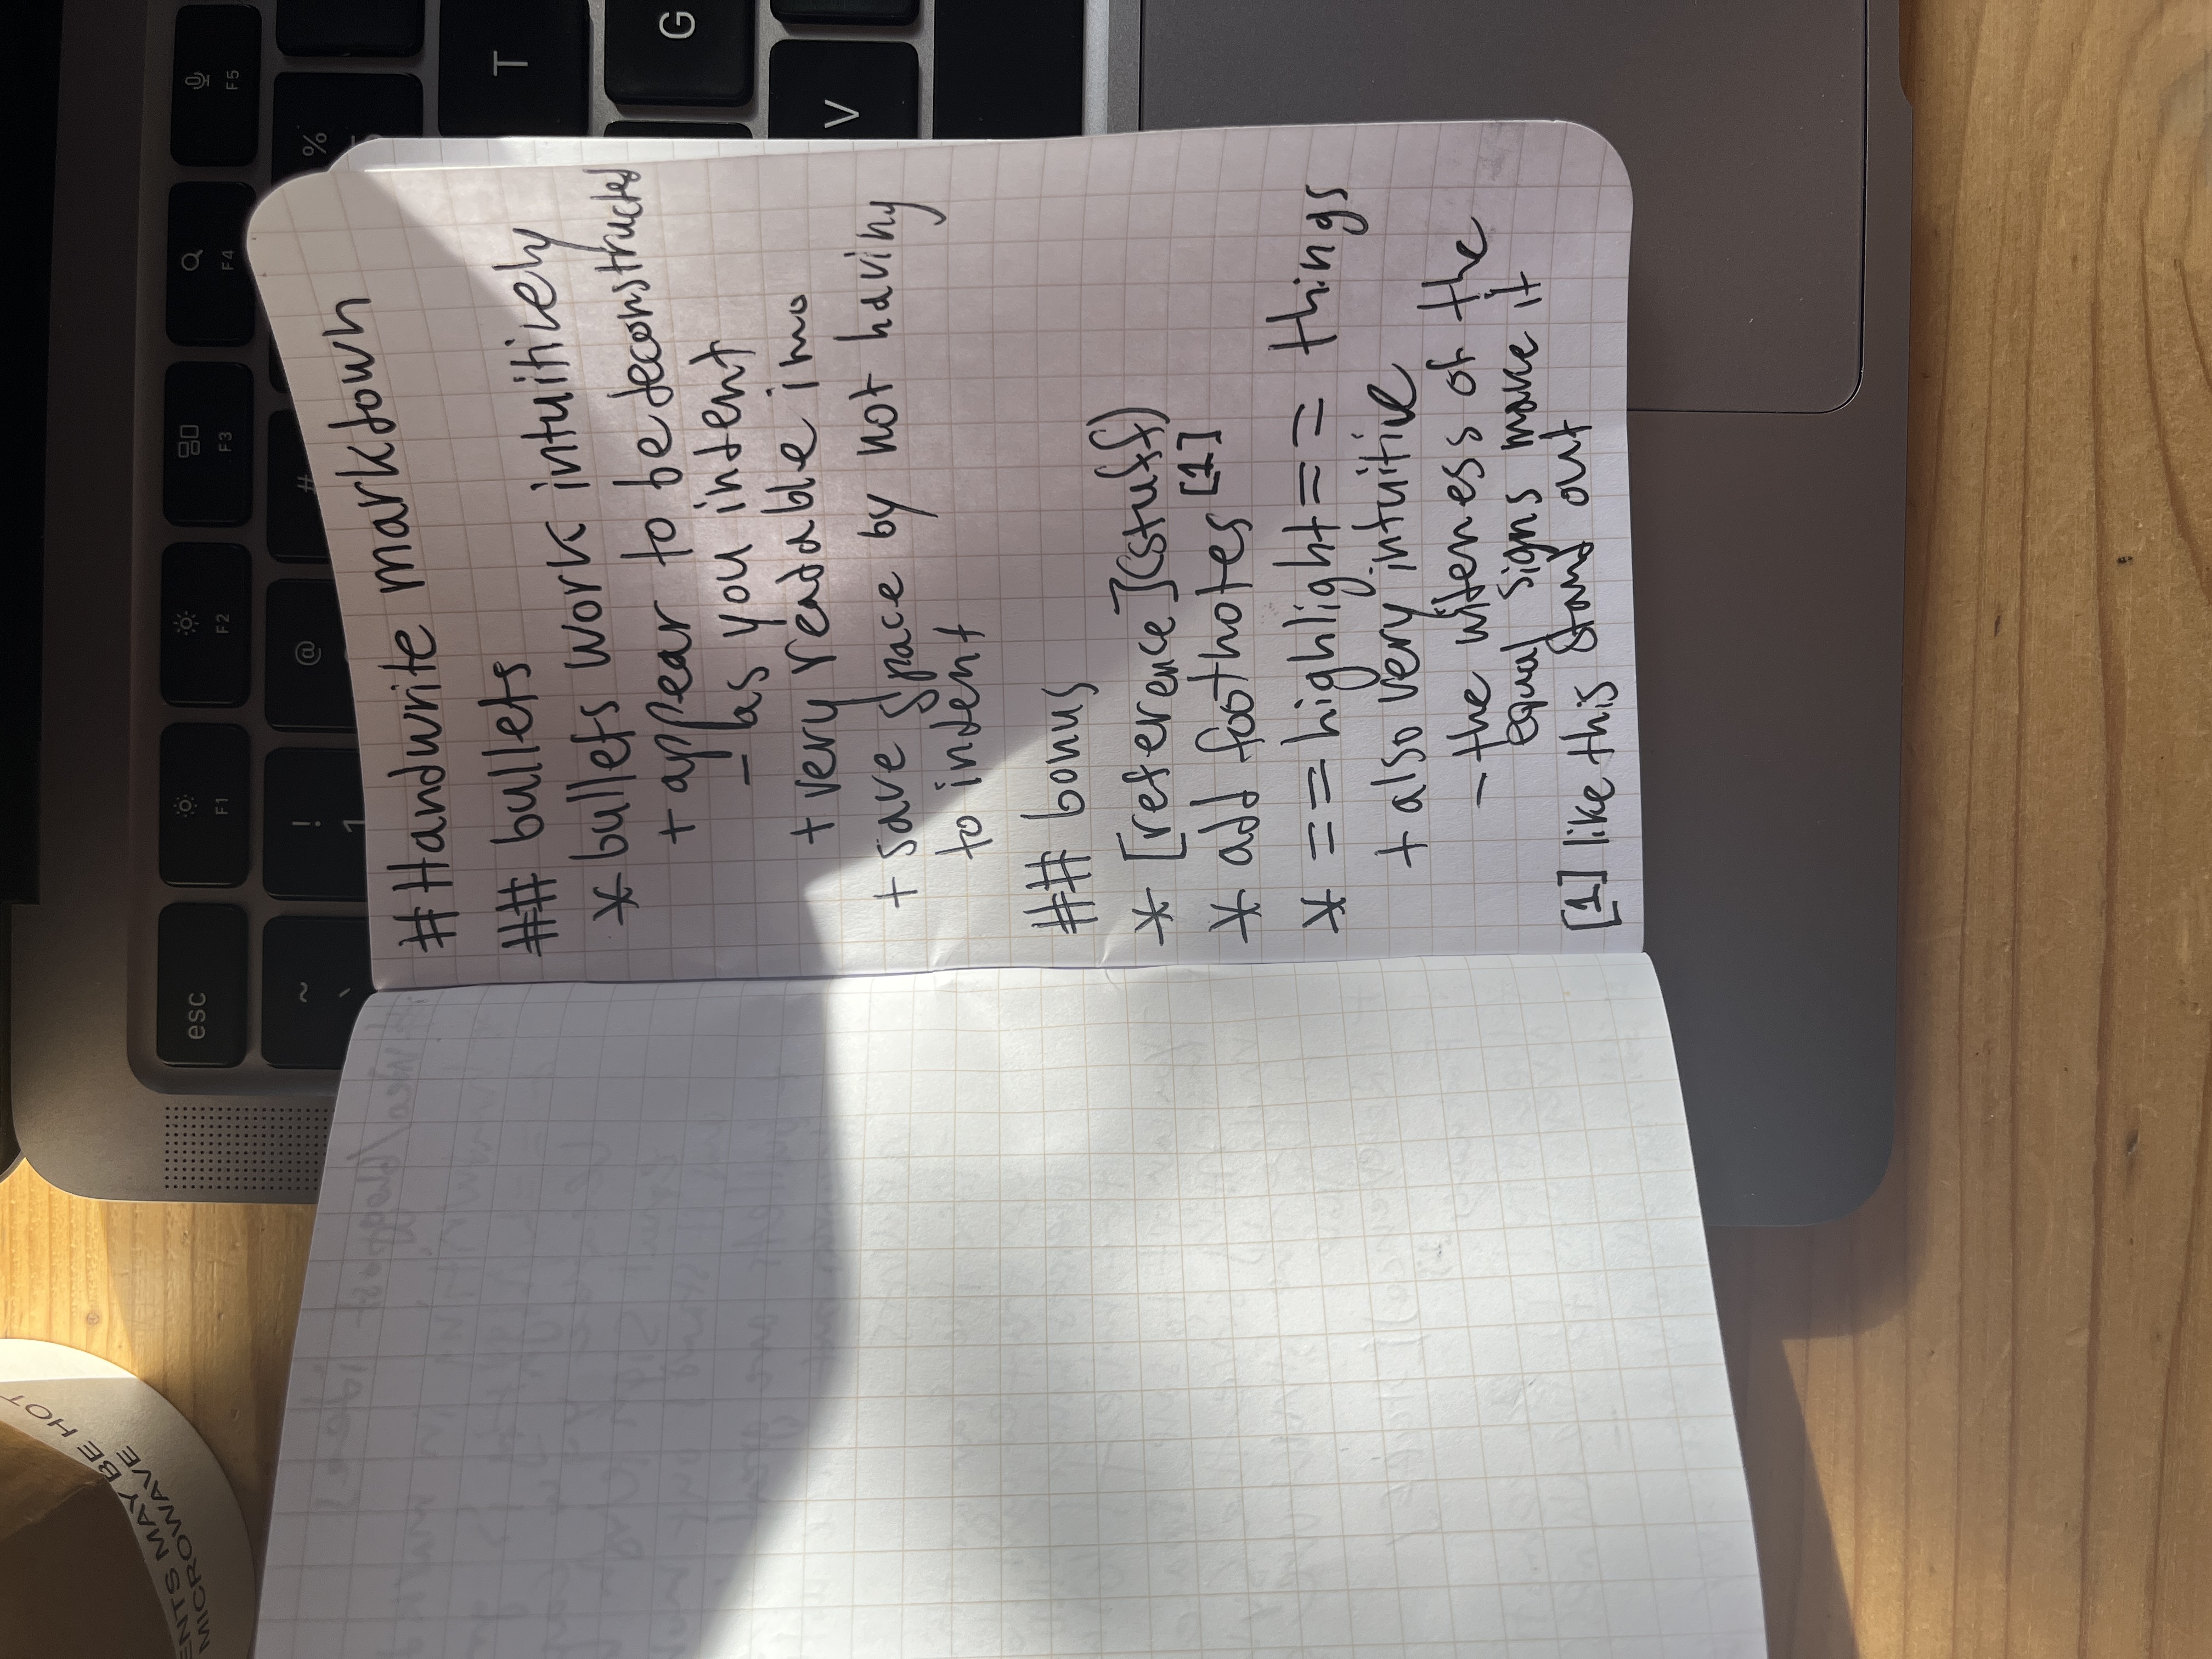 # Handwrite markdown
## bullets
* bullets work intuitively
+ appear to be deconstructed
- as you indent
+ very readable imo
+ save space by not having
to indent
## bonus
* [reference](stuff)
* add footnotes [1]
* == highlight == things
+ also very intuitive
- the witeness of the
equal signs make it
stand out
[1] like this
esc
F1
F2
F3
F4
F5
~
`
!
1
@
#
%
T
G
V
ENTS MAY BE HOT
MICROWAVE